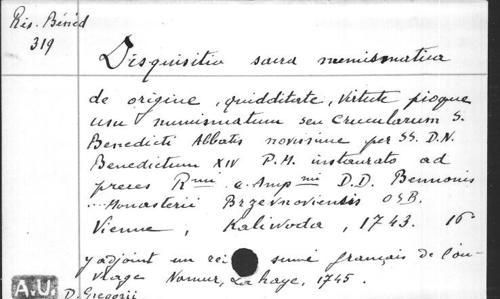 Rés. Bénéd
319
Disquisitio sacra numismatica
de origine, quidditate, virtute pioque
usu numismatum seu crucularum S.
Benedicti Abbatis novissime per SS. D.N.
Benedictum XIV P.M. instaurato ad
preces Rmi a. Ampmi D.D. Bennonis
... Monasterii Brzevnoviensis OSB.
Vienne, Kaliwoda, 1743. 16
y adjoint un suivi français de l'ou-
vrage Namur, Lahaye, 1745.
A.U.
D. Gregorii